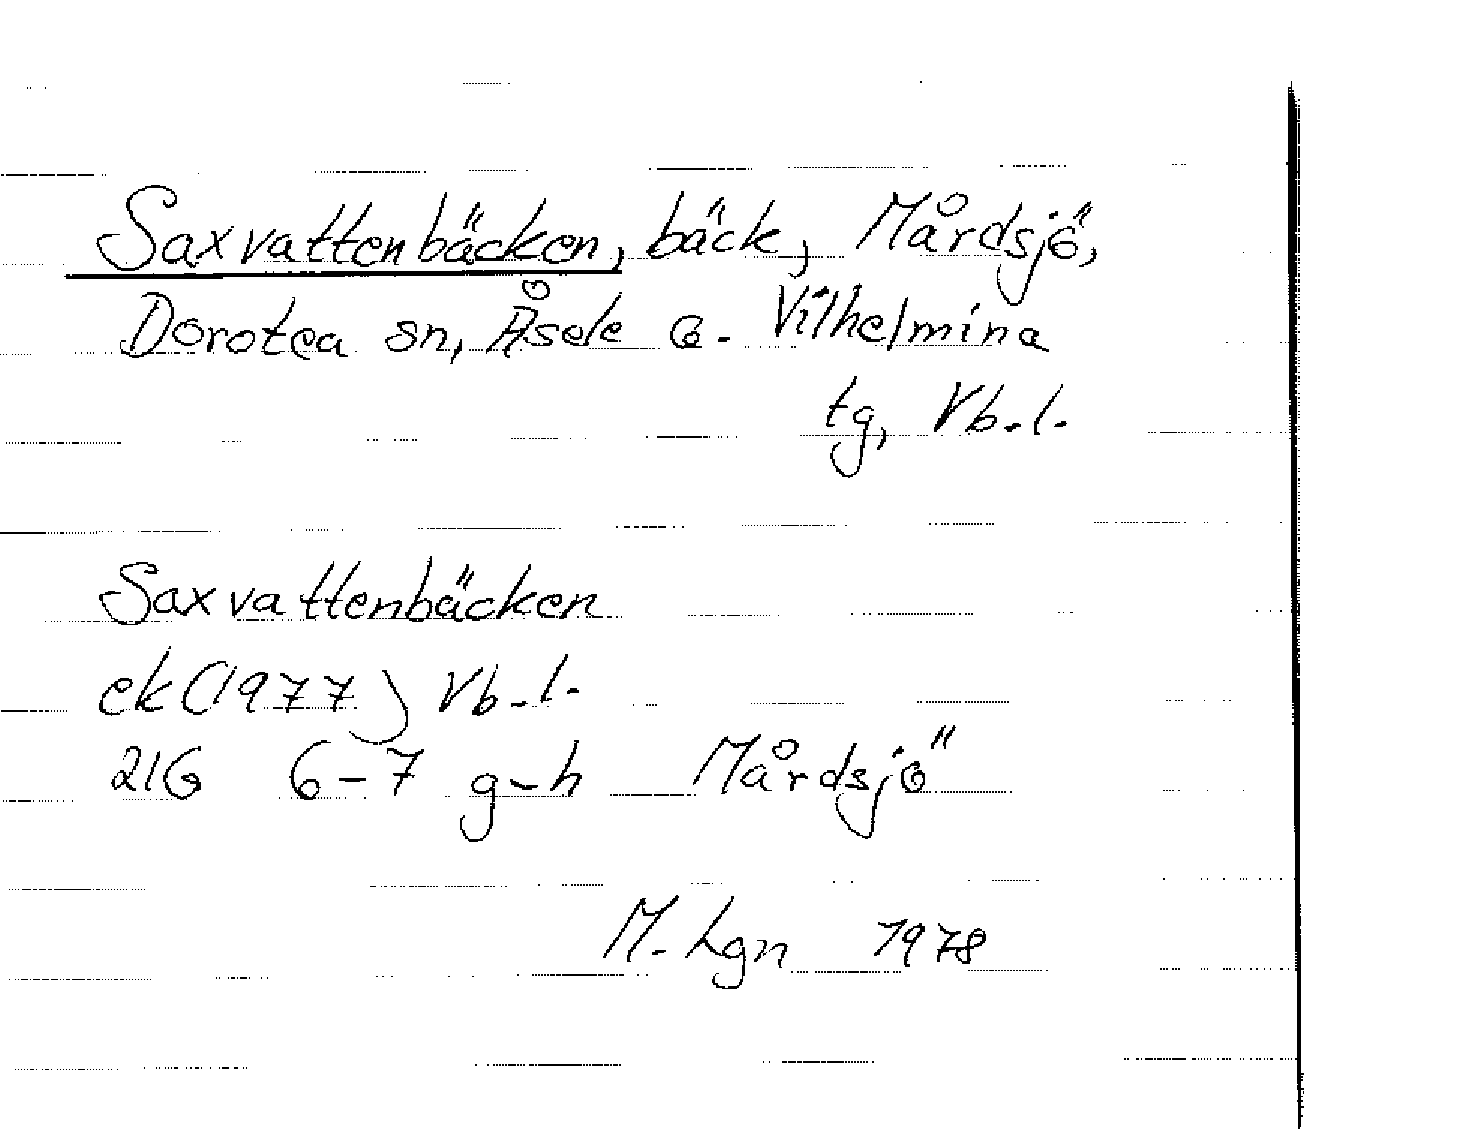 Saxvattenbäcken, bäck, Mårdsjö,
Dorotea sn, Åsele o. Vilhelmina
tg, Vb.l.
Saxvattenbäcken
ek (1977) Vb.l.
21G 6-7 g-h Mårdsjö
M. Lgn 1978